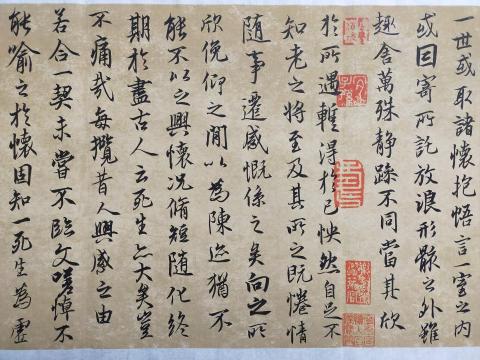 一世或取諸懷抱悟言一室之內
或因寄所託放浪形骸之外雖
趣舍萬殊靜躁不同當其欣
於所遇輒得於己怏然自足不
知老之將至及其所之既惓情
隨事遷感慨係之矣向之所
欣俛仰之閒以為陳迹猶不
能不以之興懷況脩短隨化終
期於盡古人云死生亦大矣豈
不痛哉每攬昔人興感之由
若合一契未嘗不臨文嗟悼不
能喻之於懷固知一死生為虛